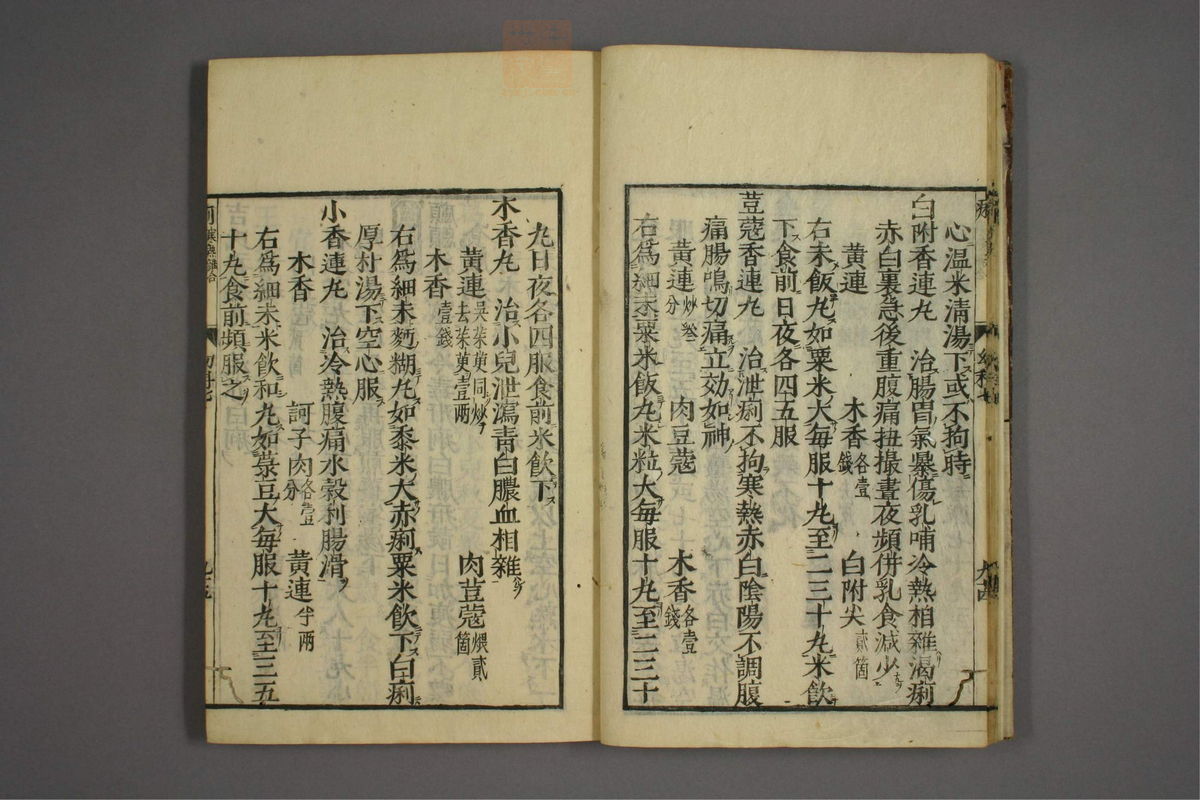 心温米清湯下或不拘時
白附香連丸　治腸胃氣暴傷乳哺冷熱相雜瀉痢
赤白裏急後重腹痛扭撮晝夜頻併乳食減少
黄連　木香各壹錢　白附尖貳箇
右末飯丸如粟米大每服十丸至二三十丸米飲
下食前日夜各四五服
荳蔻香連丸　治泄痢不拘寒熱赤白陰陽不調腹
痛腸鳴切痛立効如神
黄連炒叄分　肉豆蔻　木香各壹錢
右爲細末粟米飯丸米粒大每服十丸至二三十
丸日夜各四服食前米飲下
木香丸　治小兒泄瀉青白膿血相雜
黄連吳茱萸同炒去茱萸壹兩　肉荳蔻煨貳箇
木香壹錢
右爲細末麪糊丸如黍米大赤痢粟米飲下白痢
厚朴湯下空心服
小香連丸　治冷熱腹痛水穀利腸滑
木香　訶子肉各壹分　黄連半兩
右爲細末米飲和丸如菉豆大每服十丸至三五
十丸食前頻服之